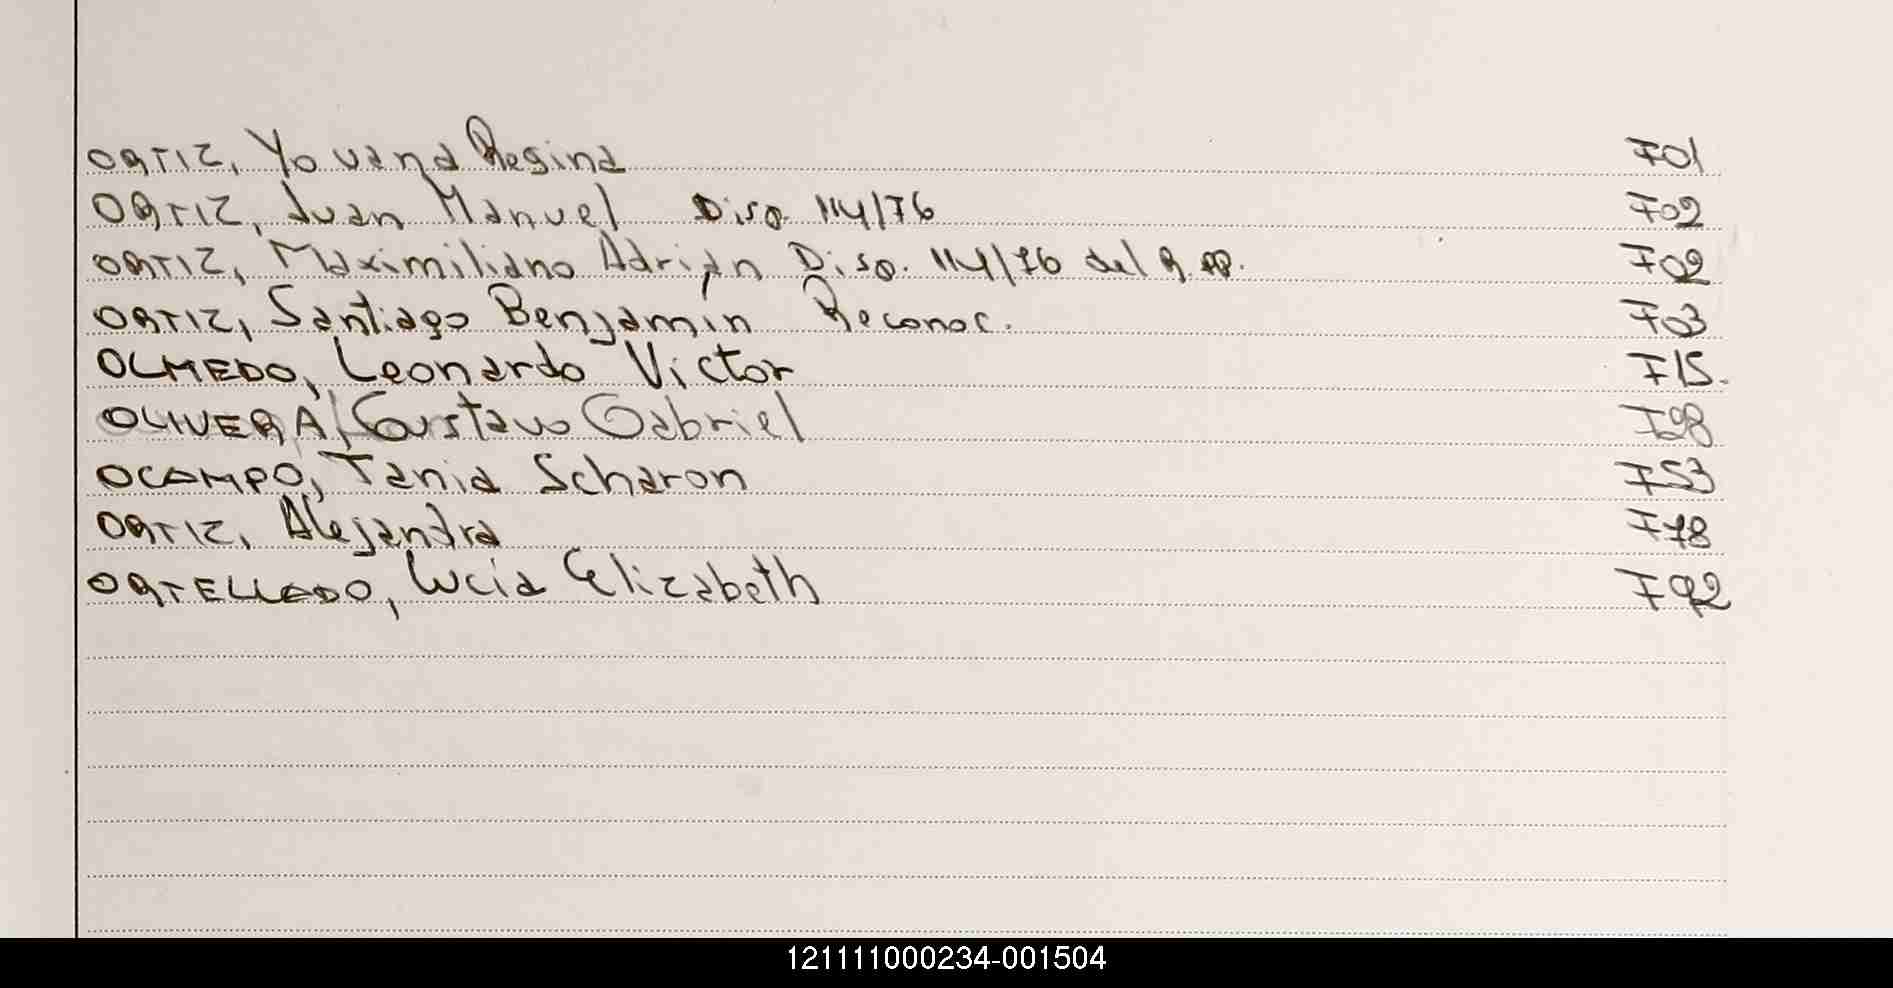 ORTIZ, Yovana Regina 701
ORTIZ, Juan Manuel Disp. 114/76 702
ORTIZ, Maximiliano Adrian Disp. 114/76 del R.P. 702
ORTIZ, Santiago Benjamin Reconoc. 703
OLMEDO, Leonardo Victor 715.
OLIVERA, Gustavo Gabriel 728
OCAMPO, Tania Scharon 753
ORTIZ, Alejandra 778
ORTELLADO, Lucia Elizabeth 792
121111000234-001504